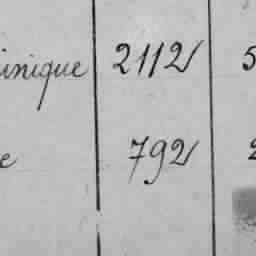 inique 2112 5
e 792 2